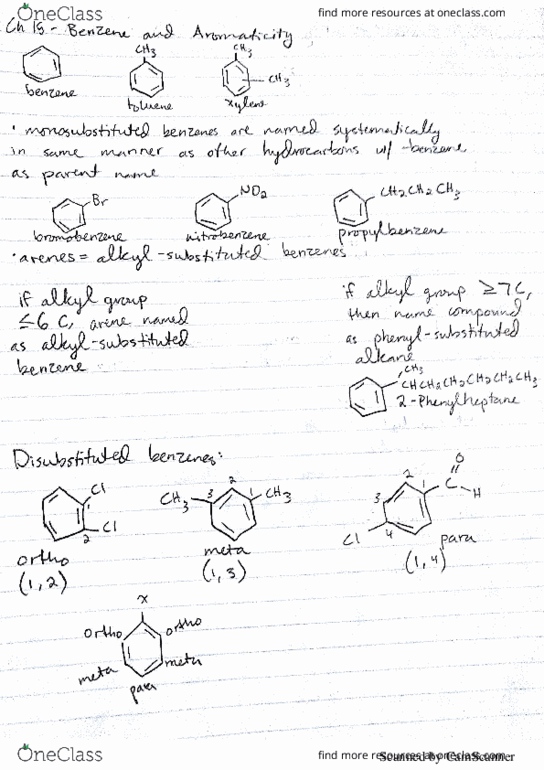 OneClass
find more resources at oneclass.com
Ch 15 - Benzene and Aromaticity
CH3
CH3
CH3
benzene
toluene
xylene
• monosubstituted benzenes are named systematically
in same manner as other hydrocarbons w/ -benzene
as parent name
Br
NO2
CH2CH2CH3
bromobenzene
nitrobenzene
propylbenzene
• arenes = alkyl-substituted benzenes
if alkyl group
≤6 C, arene named
as alkyl-substituted
benzene
if alkyl group ≥7C,
then name compound
as phenyl-substituted
alkane
CH3
CHCH2CH2CH2CH2CH3
2-Phenylheptane
Disubstituted benzenes:
Cl
1
Cl
2
ortho
(1,2)
CH3
3
2
1
CH3
meta
(1,3)
O
C
H
1
2
3
4
Cl
para
(1,4)
X
ortho
ortho
meta
meta
para
OneClass
find more resources at oneclass.com
Scanned by CamScanner